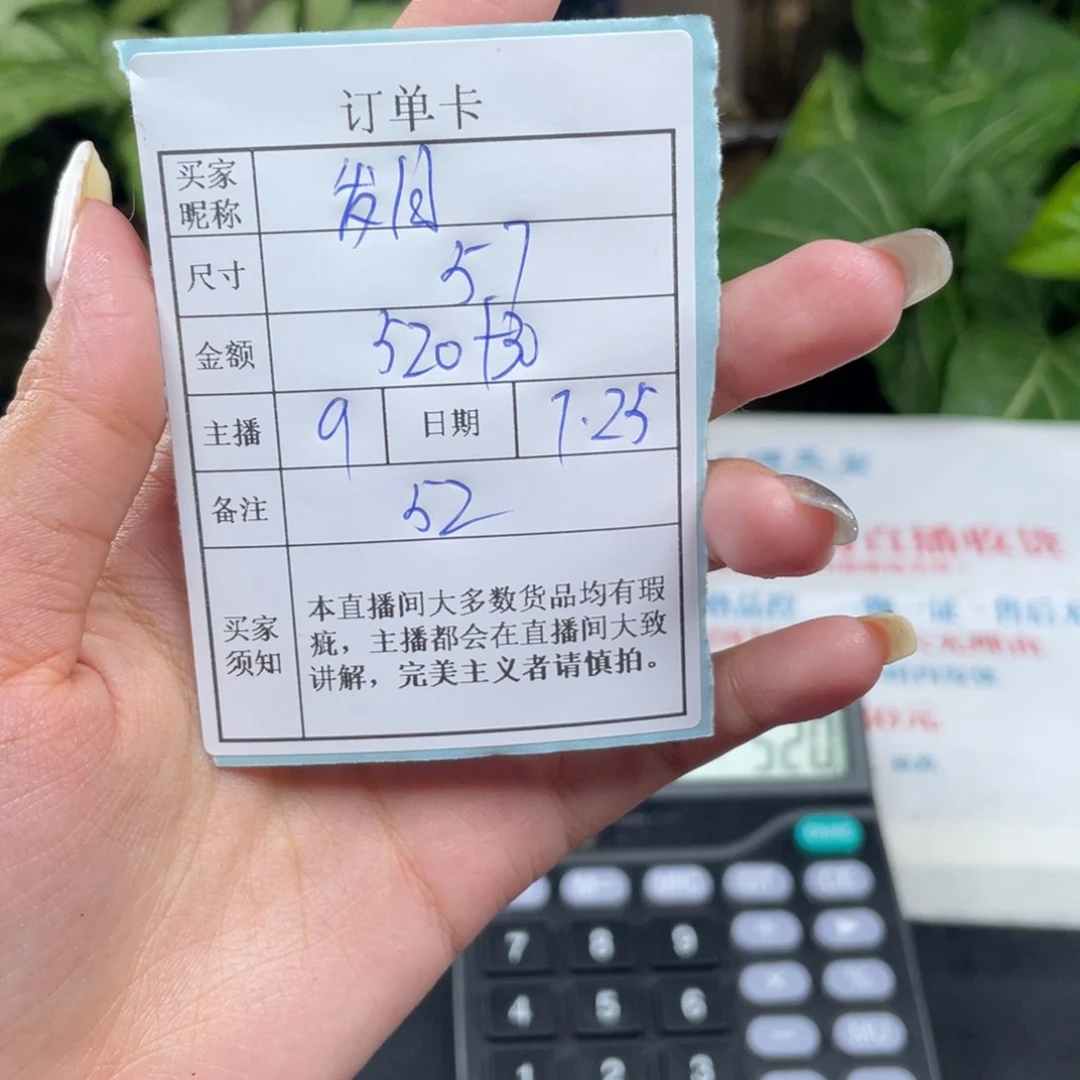 订单卡
买家
昵称
发图
尺寸 57
金额 520+30
主播 9 日期 7.25
备注 52
买家
须知
本直播间大多数货品均有瑕
疵，主播都会在直播间大致
讲解，完美主义者请慎拍。
直播收货
售后无
520.
7 8 9
4 5 6
1 2 3